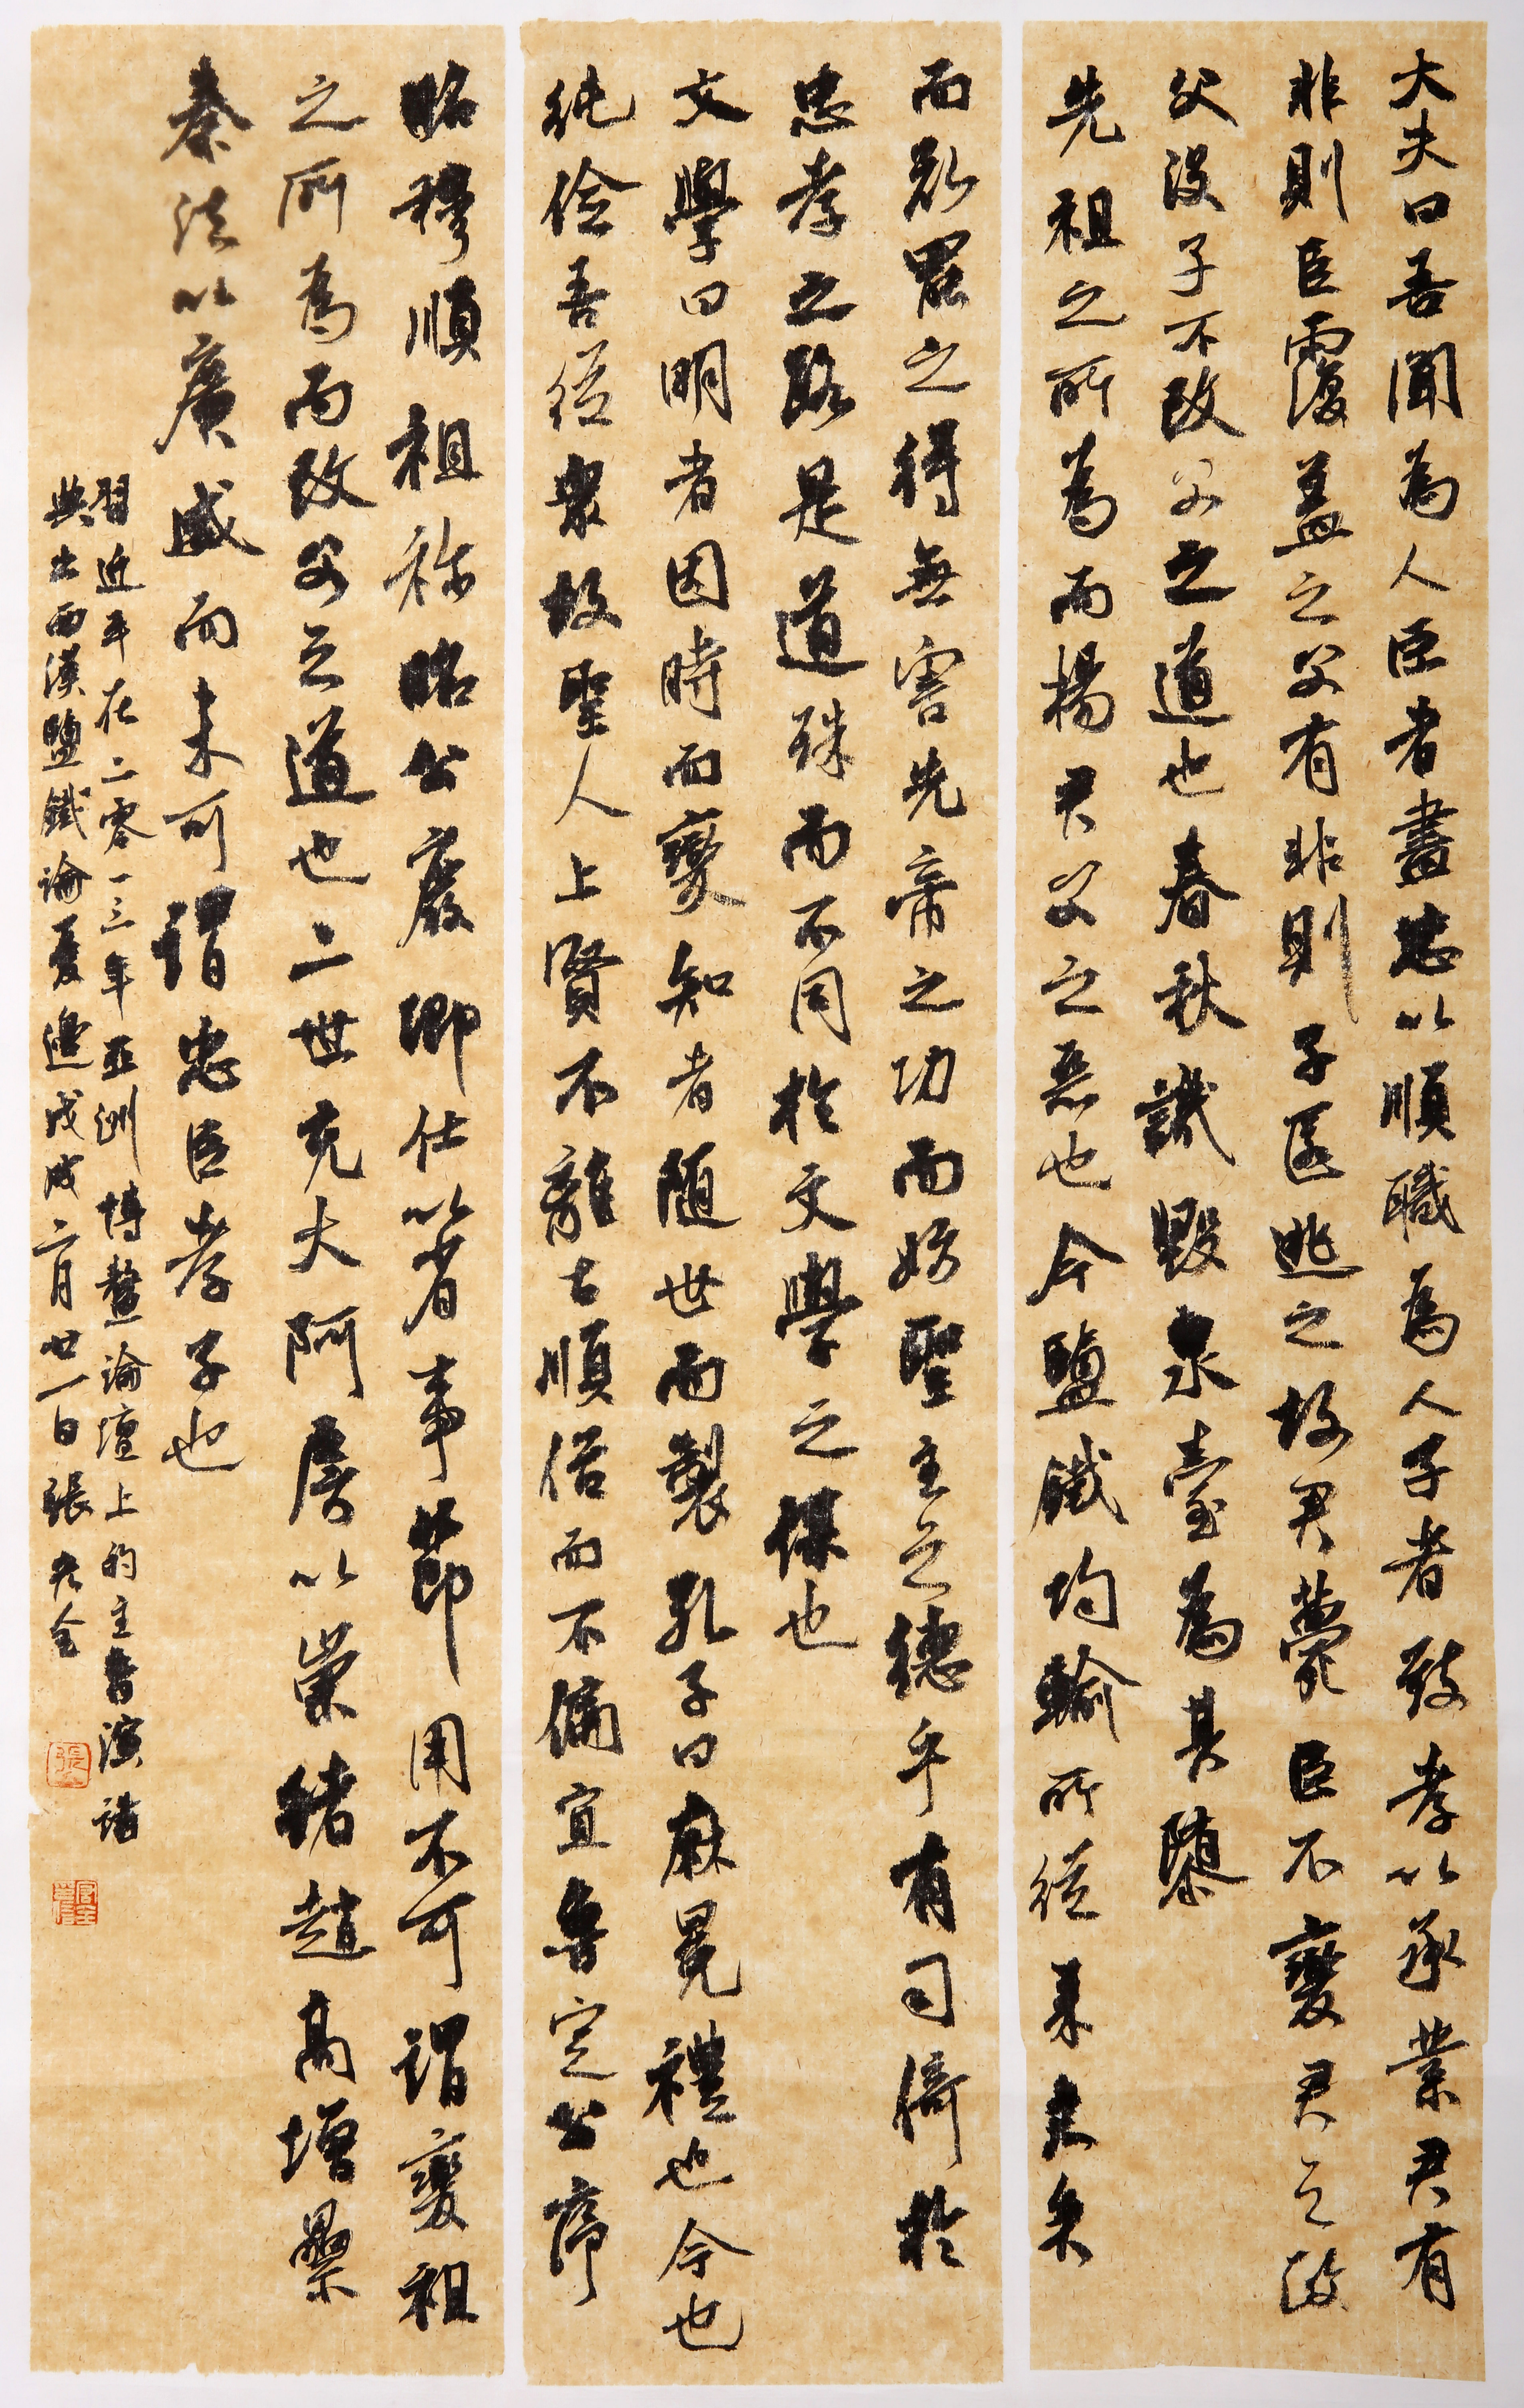 大夫曰吾聞為人臣者盡忠以順職為人子者致孝以承業君有
非則臣覆蓋之父有非則子匿逃之故君薨臣不變君之政
父沒子不改父之道也春秋譏毀泉臺為其隳
先祖之所為而揚君父之惡也今鹽鐵均輸所從來久矣
而欲罷之得無害先帝之功而妨聖主之德乎有司倚於
忠孝之路是道殊而不同於文學之謀也
文學曰明者因時而變知者隨世而製孔子曰麻冕禮也今也
純儉吾從眾故聖人上賢不離古順俗而不偏宜魯定公序
昭穆順祖祢昭公廢卿仕以省事節用不可謂變祖
之所為而改父之道也二世充大阿房以崇緒趙高增累
秦法以廣威而未可謂忠臣孝子也
習近平在二零一三年亞洲博鰲論壇上的主旨演講
典出西漢鹽鐵論憂邊戊戌二月廿一日張光全